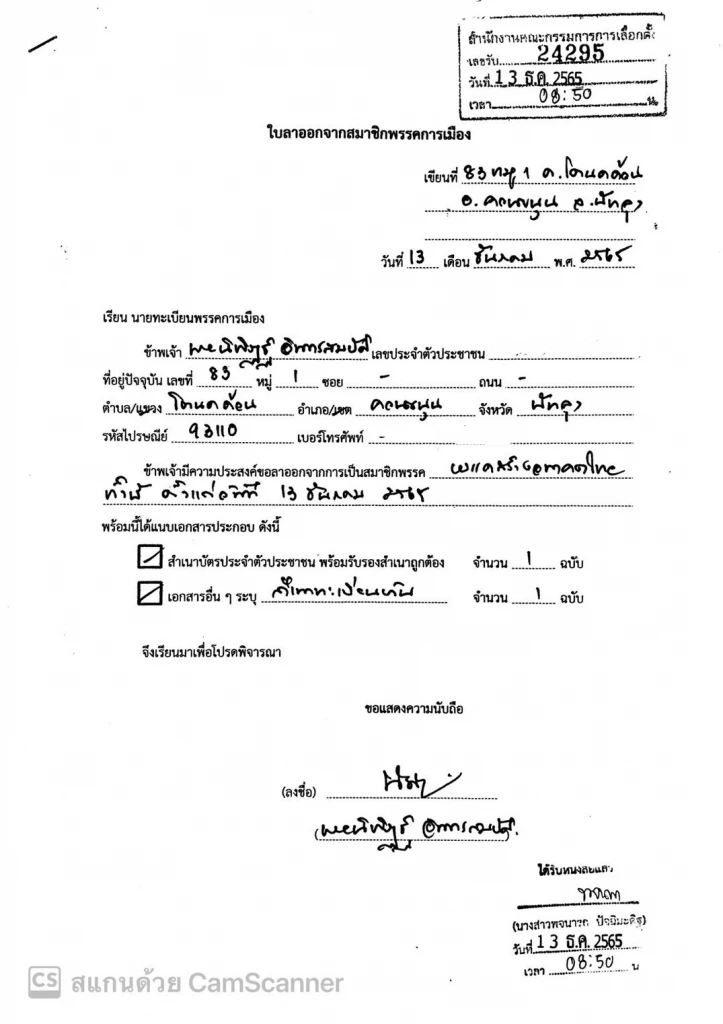 สำนักงานคณะกรรมการการเลือกตั้ง
เลขรับ 24295
วันที่ 13 ธ.ค. 2565
เวลา 08:50 น.
ใบลาออกจากสมาชิกพรรคการเมือง
เขียนที่ 83 หมู่ 1 ต.โตนดด้วน
อ.ควนขนุน จ.พัทลุง
วันที่ 13 เดือน ธันวาคม พ.ศ. 2565
เรียน นายทะเบียนพรรคการเมือง
ข้าพเจ้า นายนิพิฏฐ์ อินทรสมบัติ เลขประจำตัวประชาชน
ที่อยู่ปัจจุบัน เลขที่ 83 หมู่ 1 ซอย - ถนน -
ตำบล/แขวง โตนดด้วน อำเภอ/เขต ควนขนุน จังหวัด พัทลุง
รหัสไปรษณีย์ 93110 เบอร์โทรศัพท์ -
ข้าพเจ้ามีความประสงค์ขอลาออกจากการเป็นสมาชิกพรรค สร้างอนาคตไทย
ทั้งนี้ ตั้งแต่วันที่ 13 ธันวาคม 2565
พร้อมนี้ได้แนบเอกสารประกอบ ดังนี้
สำเนาบัตรประจำตัวประชาชน พร้อมรับรองสำเนาถูกต้อง จำนวน 1 ฉบับ
เอกสารอื่น ๆ ระบุ สำเนาทะเบียนบ้าน จำนวน 1 ฉบับ
จึงเรียนมาเพื่อโปรดพิจารณา
ขอแสดงความนับถือ
(ลงชื่อ)
(นายนิพิฏฐ์ อินทรสมบัติ)
ได้รับหนังสือแล้ว
(นางสาวพจนารถ ปัจฉิมะดิฐ)
วันที่ 13 ธ.ค. 2565
เวลา 08:50 น
CS สแกนด้วย CamScanner